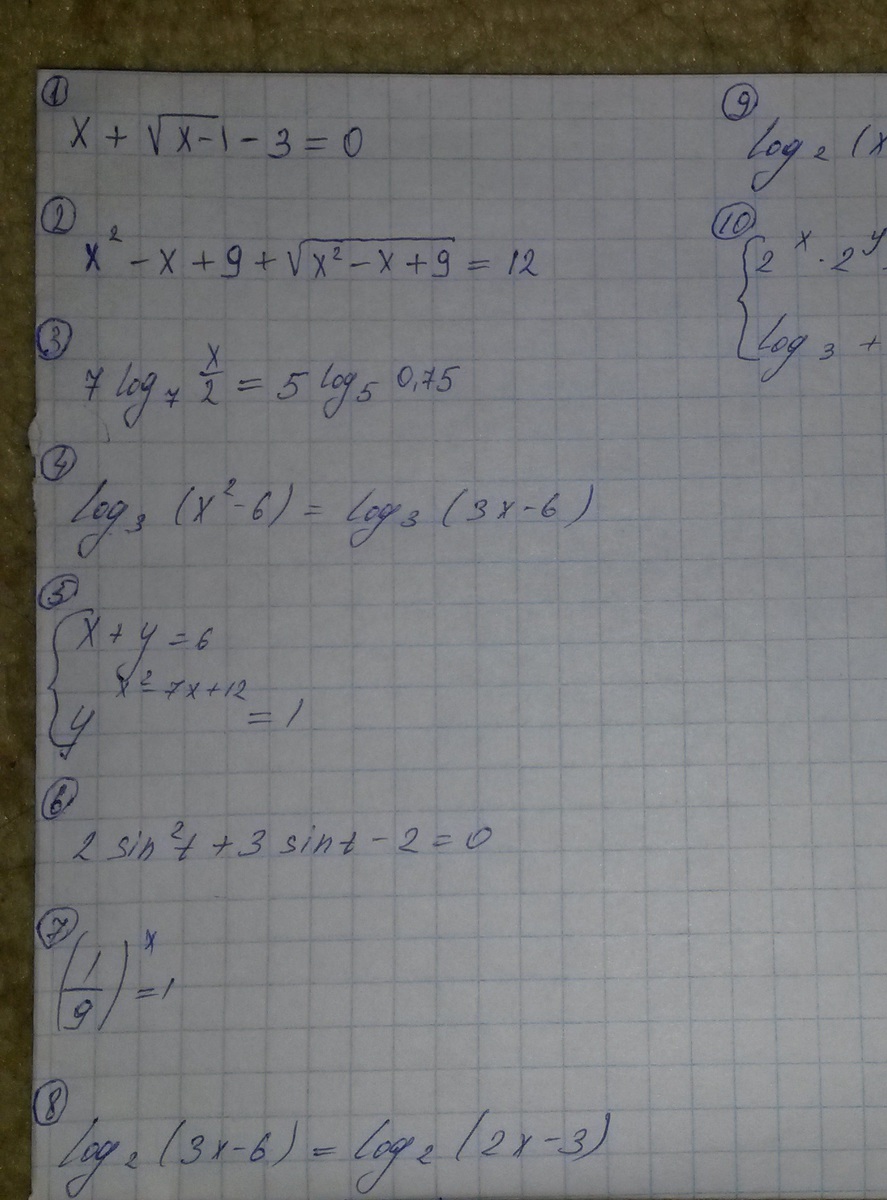 ①
x + √(x-1) - 3 = 0
②
x² - x + 9 + √(x² - x + 9) = 12
③
7 log₇ x/2 = 5 log₅ 0,75
④
log₃ (x² - 6) = log₃ (3x - 6)
⑤
{ x + y = 6
y^(x² - 7x + 12) = 1
⑥
2 sin²t + 3 sin t - 2 = 0
⑦
(1/9)^x = 1
⑧
log₂ (3x - 6) = log₂ (2x - 3)
⑨
log₂ (x
⑩
{ 2^x · 2^y
log₃ +